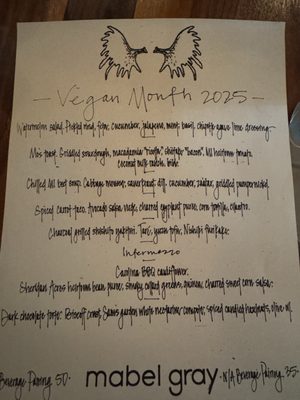 Vegan Month 2025
Watermelon salad. Pickled rind, feta, cucumber, jalapeno, mint, basil, chipotle agave lime dressing.
Griddled sourdough, macadamia "ricotta", shiitake "bacon", MI heirloom tomato,
coconut milk
Chilled MI beet soup. Cabbage, sauerkraut, dill, cucumber, zaatar, griddled pumpernickel.
Spiced carrot taco. Avocado salsa verde, charred eggplant puree, corn tortilla, cilantro.
Charcoal grilled shishito yakitori. Tare, yuzu tofu,
Intermezzo
Carolina BBQ cauliflower.
Acres heirloom bean puree, smoky collard greens, charred sweet corn salsa.
Dark chocolate torte. crust, garden white nectarine compote, spiced candied hazelnuts, olive oil.
Beverage Pairing 50.
mabel gray.
N/A Beverage Pairing 35.